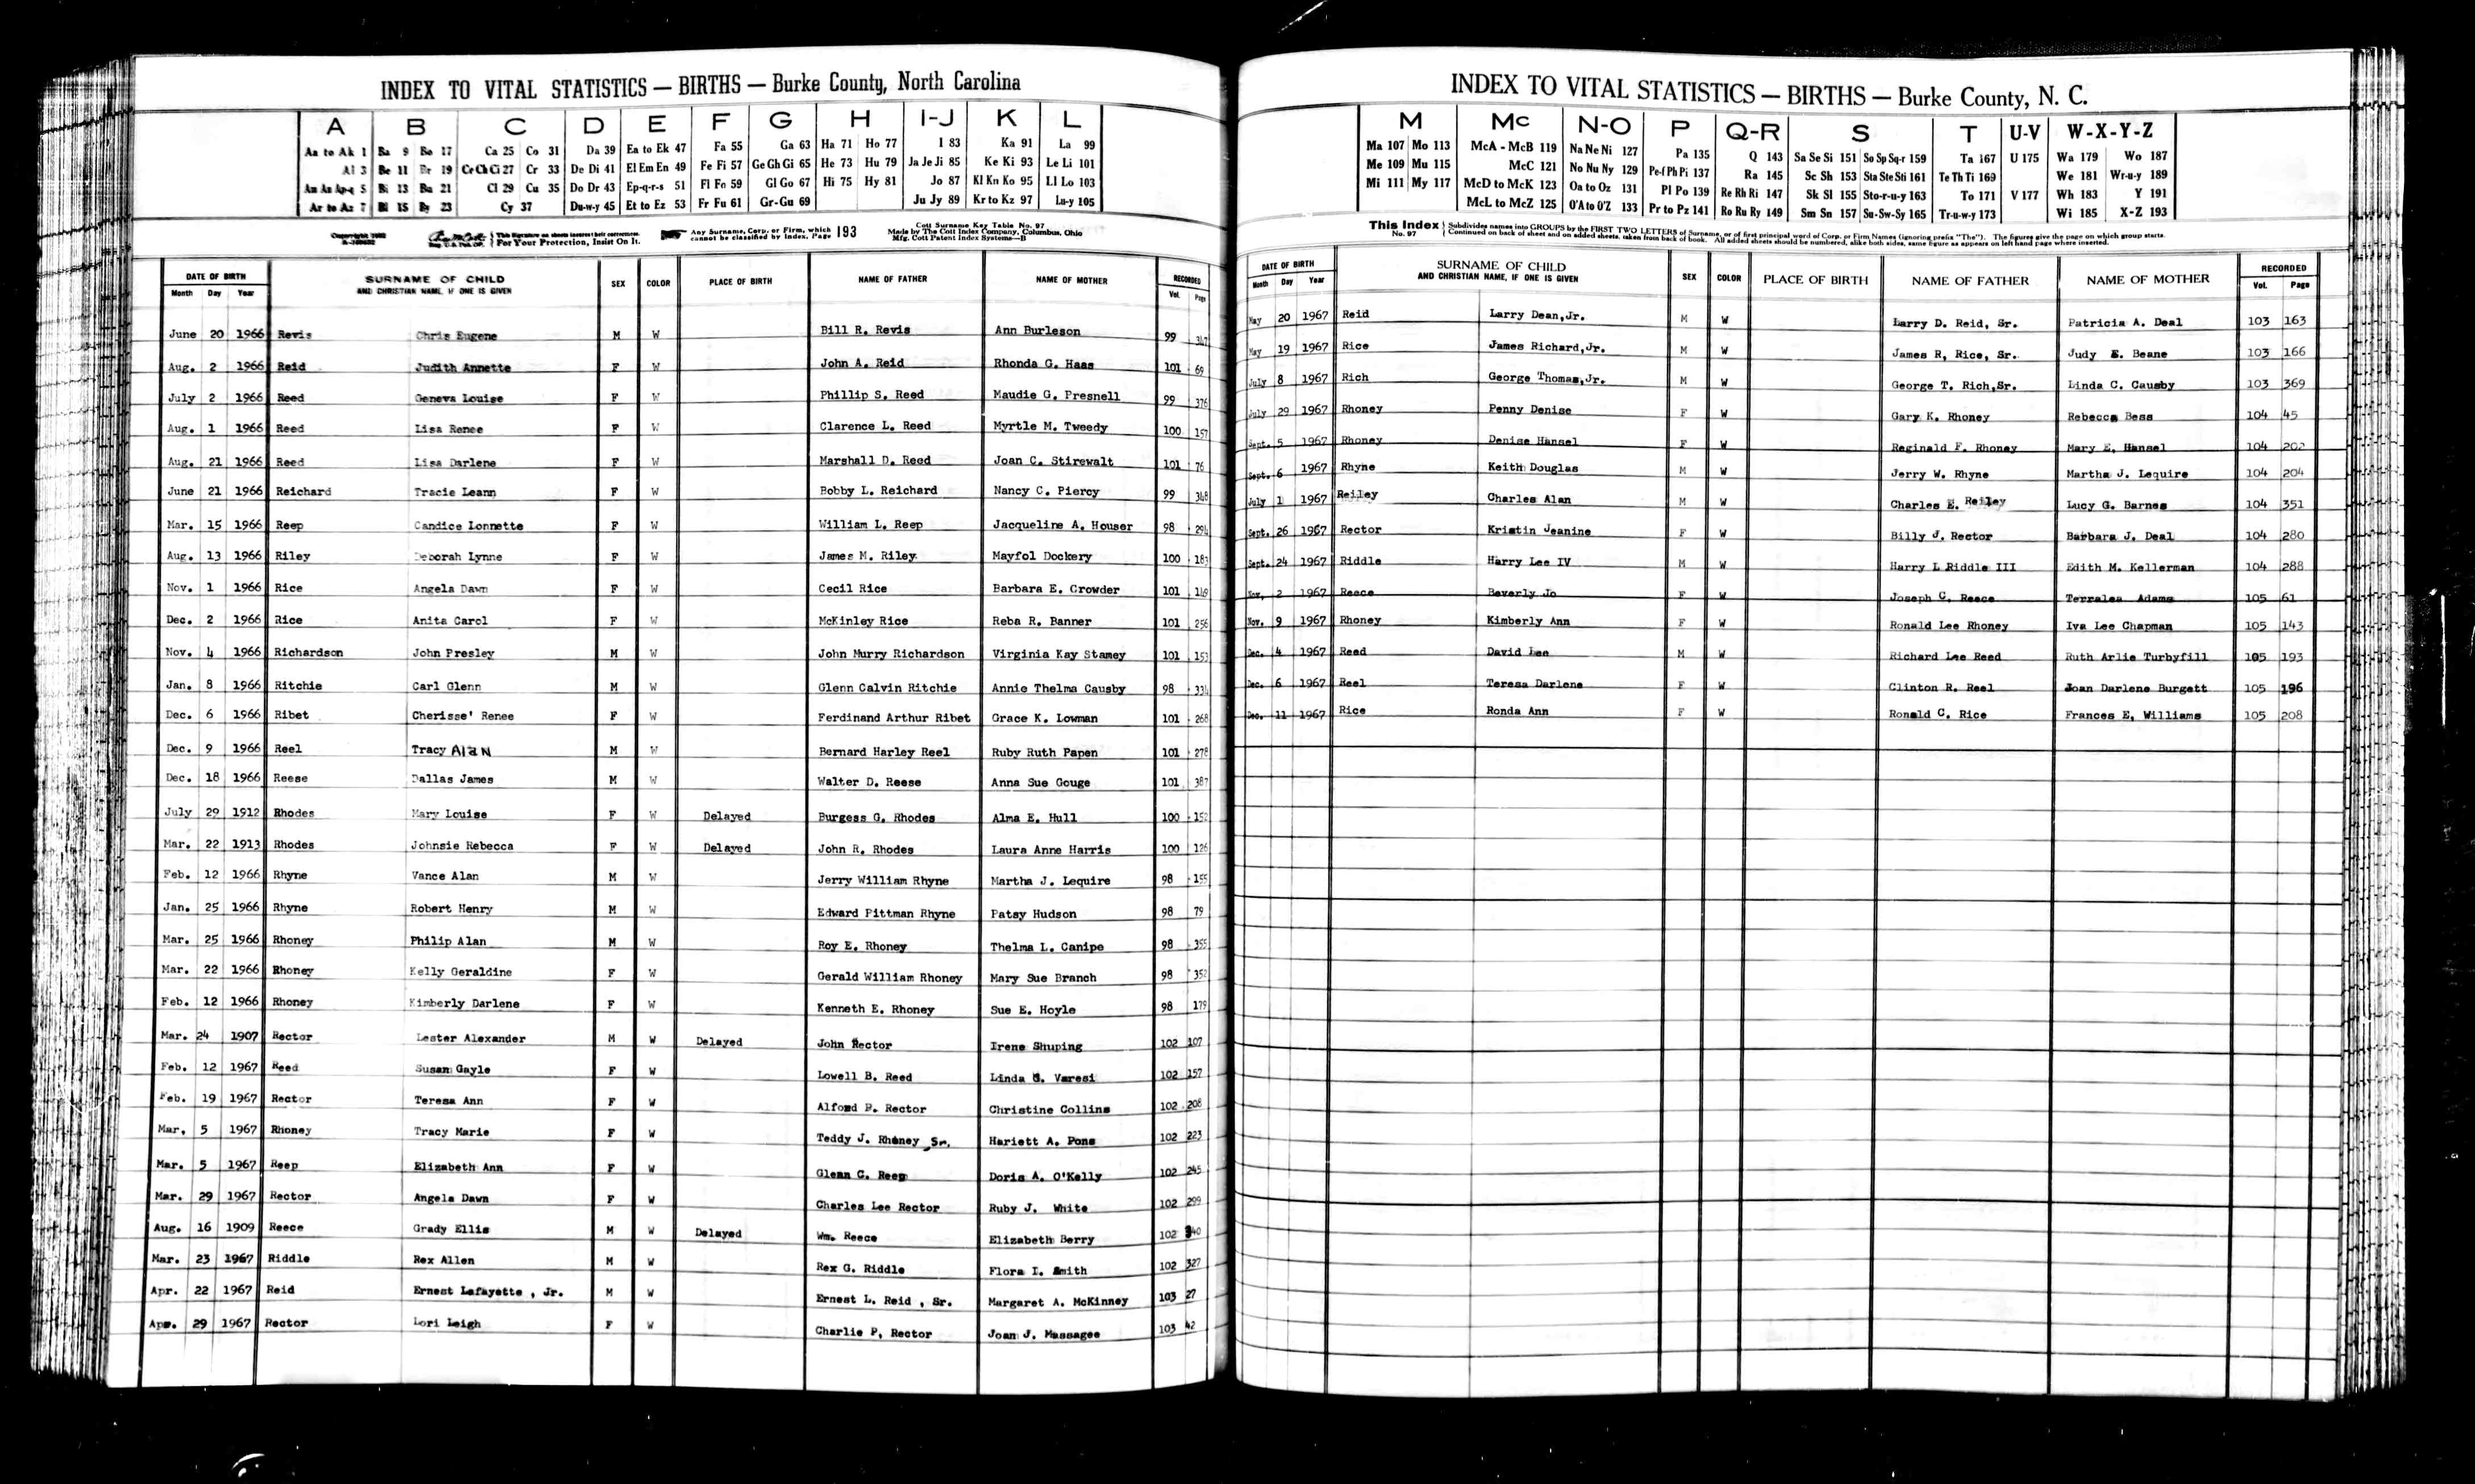 INDEX TO VITAL STATISTICS — BIRTHS — Burke County, North Carolina
A B C D E F G H I-J K L
Aa to Ak 1 Ba 9 Bo 17 Ca 25 Co 31 Da 39 Ea to Ek 47 Fa 55 Ga 63 Ha 71 Ho 77 I 83 Ka 91 La 99
Al 3 Be 11 Br 19 Ce Ch Ci 27 Cr 33 De Di 41 El Em En 49 Fe Fi 57 Ge Gh Gi 65 He 73 Hu 79 Ja Je Ji 85 Ke Ki 93 Le Li 101
5 Bi 13 Bu 21 Cl 29 Cu 35 Do Dr 43 Ep-q-r-s 51 Fl Fo 59 Gl Go 67 Hi 75 Hy 81 Jo 87 Kl Kn Ko 95 Ll Lo 103
Ar to Az 7 Bl 15 By 23 Cy 37 Du-w-y 45 Et to Ez 53 Fr Fu 61 Gr-Gu 69 Ju Jy 89 Kr to Kz 97 Lu-y 105
For Your Protection, Insist On It. Any Surname, Corp. or Firm, which cannot be classified by Index, Page 193 Cott Surname Key Table No. 97
Made by The Cott Index Company, Columbus, Ohio
Mfg. Cott Patent Index Systems—B
DATE OF BIRTH SURNAME OF CHILD SEX COLOR PLACE OF BIRTH NAME OF FATHER NAME OF MOTHER RECORDED
Month Day Year AND CHRISTIAN NAME, IF ONE IS GIVEN Vol. Page
June 20 1966 Revis Chris Eugene M W Bill R. Revis Ann Burleson 99 347
Aug. 2 1966 Reid Judith Annette F W John A. Reid Rhonda G. Haas 101 69
July 2 1966 Reed Geneva Louise F W Phillip S. Reed Maudie G. Presnell 99 376
Aug. 1 1966 Reed Lisa Renee F W Clarence L. Reed Myrtle M. Tweedy 100 157
Aug. 21 1966 Reed Lisa Darlene F W Marshall D. Reed Joan C. Stirewalt 101 76
June 21 1966 Reichard Tracie Leann F W Bobby L. Reichard Nancy C. Piercy 99 348
Mar. 15 1966 Reep Candice Lonnette F W William L. Reep Jacqueline A. Houser 98 294
Aug. 13 1966 Riley Deborah Lynne F W James M. Riley Mayfol Dockery 100 183
Nov. 1 1966 Rice Angela Dawn F W Cecil Rice Barbara E. Crowder 101
Dec. 2 1966 Rice Anita Carol F W McKinley Rice Reba R. Banner 101 256
Nov. 4 1966 Richardson John Presley M W John Murry Richardson Virginia Kay Stamey 101 153
Jan. 8 1966 Ritchie Carl Glenn M W Glenn Calvin Ritchie Annie Thelma Causby 98 334
Dec. 6 1966 Ribet Cherisse' Renee F W Ferdinand Arthur Ribet Grace K. Lowman 101 268
Dec. 9 1966 Reel Tracy Alan M W Bernard Harley Reel Ruby Ruth Papen 101 278
Dec. 18 1966 Reese Dallas James M W Walter D. Reese Anna Sue Gouge 101 387
July 29 1912 Rhodes Mary Louise F W Delayed Burgess G. Rhodes Alma E. Hull 100 152
Mar. 22 1913 Rhodes Johnsie Rebecca F W Delayed John R. Rhodes Laura Anne Harris 100 126
Feb. 12 1966 Rhyne Vance Alan M W Jerry William Rhyne Martha J. Lequire 98 155
Jan. 25 1966 Rhyne Robert Henry M W Edward Pittman Rhyne Patsy Hudson 98 79
Mar. 25 1966 Rhoney Philip Alan M W Roy E. Rhoney Thelma L. Canipe 98 355
Mar. 22 1966 Rhoney Kelly Geraldine F W Gerald William Rhoney Mary Sue Branch 98 352
Feb. 12 1966 Rhoney Kimberly Darlene F W Kenneth E. Rhoney Sue E. Hoyle 98 179
Mar. 24 1907 Rector Lester Alexander M W Delayed John Rector Irene Shuping 102 107
Feb. 12 1967 Reed Susan Gayle F W Lowell B. Reed Linda G. Varesi 102 157
Feb. 19 1967 Rector Teresa Ann F W Alfomd P. Rector Christine Collins 102 208
Mar. 5 1967 Rhoney Tracy Marie F W Teddy J. Rhoney Sr. Hariett A. Pons 102 223
Mar. 5 1967 Reep Elizabeth Ann F W Glenn C. Reep Doris A. O'Kelly 102 245
Mar. 29 1967 Rector Angela Dawn F W Charles Lee Rector Ruby J. White 102 299
Aug. 16 1909 Reece Grady Ellis M W Delayed Wm. Reece Elizabeth Berry 102 340
Mar. 23 1967 Riddle Rex Allen M W Rex G. Riddle Flora I. Smith 102 327
Apr. 22 1967 Reid Ernest Lafayette , Jr. M W Ernest L. Reid , Sr. Margaret A. McKinney 103 27
Apr. 29 1967 Rector Lori Leigh F W Charlie P. Rector Joan J. Massagee 103 42
INDEX TO VITAL STATISTICS — BIRTHS — Burke County, N. C.
M Mc N-O P Q-R S T U-V W-X-Y-Z
Ma 107 Mo 113 McA - McB 119 Na Ne Ni 127 Pa 135 Q 143 Sa Se Si 151 So Sp Sq-r 159 Ta 167 U 175 Wa 179 Wo 187
Me 109 Mu 115 McC 121 No Nu Ny 129 Pe-f Ph Pi 137 Ra 145 Sc Sh 153 Sta Ste Sti 161 Te Th Ti 169 We 181 Wr-u-y 189
Mi 111 My 117 McD to McK 123 Oa to Oz 131 Pl Po 139 Re Rh Ri 147 Sk Sl 155 Sto-r-u-y 163 To 171 V 177 Wh 183 Y 191
McL to McZ 125 O'A to O'Z 133 Pr to Pz 141 Ro Ru Ry 149 Sm Sn 157 Su-Sw-Sy 165 Tr-u-w-y 173 Wi 185 X-Z 193
This Index No. 97 Subdivides names into GROUPS by the FIRST TWO LETTERS of Surname, or of first principal word of Corp. or Firm Names (ignoring prefix "The"). The figures give the page on which group starts.
Continued on back of sheet and on added sheets, taken from back of book. All added sheets should be numbered, alike both sides, same figure as appears on left hand page where inserted.
DATE OF BIRTH SURNAME OF CHILD SEX COLOR PLACE OF BIRTH NAME OF FATHER NAME OF MOTHER RECORDED
Month Day Year AND CHRISTIAN NAME, IF ONE IS GIVEN Vol. Page
May 20 1967 Reid Larry Dean,Jr. M W Larry D. Reid, Sr. Patricia A. Deal 103 163
May 19 1967 Rice James Richard,Jr. M W James R, Rice, Sr. Judy E. Beane 103 166
July 8 1967 Rich George Thomas,Jr. M W George T. Rich,Sr. Linda C. Causby 103 369
July 29 1967 Rhoney Penny Denise F W Gary K. Rhoney Rebecca Bess 104 45
Sept. 5 1967 Rhoney Denise Hansel F W Reginald F. Rhoney Mary E. Hansel 104 202
Sept. 6 1967 Rhyne Keith Douglas M W Jerry W. Rhyne Martha J. Lequire 104 204
July 1 1967 Reiley Charles Alan M W Charles E. Reiley Lucy G. Barnes 104 351
Sept. 26 1967 Rector Kristin Jeanine F W Billy J. Rector Barbara J. Deal 104 280
Sept. 24 1967 Riddle Harry Lee IV M W Harry L Riddle III Edith M. Kellerman 104 288
Nov. 2 1967 Reece Beverly Jo F W Joseph C. Reece Terralea Adams 105 61
Nov. 9 1967 Rhoney Kimberly Ann F W Ronald Lee Rhoney Iva Lee Chapman 105 143
Dec. 4 1967 Reed David Lee M W Richard Lee Reed Ruth Arlie Turbyfill 105 193
Dec. 6 1967 Reel Teresa Darlene F W Clinton R. Reel Joan Darlene Burgett 105 196
Dec. 11 1967 Rice Ronda Ann F W Ronald C. Rice Frances E. Williams 105 208